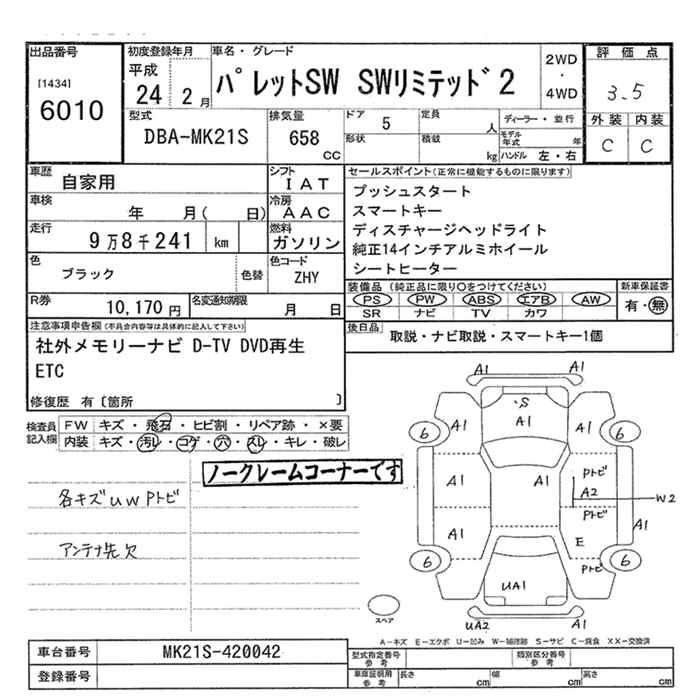 出品番号
[1434]
6010
初度登録年月
平成
24 2月
車名・グレード
パレットSW SWリミテッド2
2WD
・
4WD
評価点
3.5
外装 内装
C C
型式
DBA-MK21S
排気量
658
CC
ドア 5
形状
定員 人
積載 kg
ディーラー・並行
モデル年式 年
ハンドル 左・右
車歴
自家用
シフト
IAT
車検
年 月( 日)
冷房
AAC
走行
9万8千241 km
燃料
ガソリン
色
ブラック
色替
色コード
ZHY
R券
10,170円
名変通知期限
月 日
セールスポイント(正常に機能するものに限ります)
プッシュスタート
スマートキー
ディスチャージヘッドライト
純正14インチアルミホイール
シートヒーター
装備品(純正品に限り○をつけてください)
PS PW ABS エアB AW
SR ナビ TV カワ
新車保証書
有・無
後日品
取説・ナビ取説・スマートキー1個
注意事項申告欄(不具合内容等は具体的に記入して下さい)
社外メモリーナビ D-TV DVD再生
ETC
修復歴 有〔箇所 〕
検査員
記入欄
FW キズ・飛石・ヒビ割・リペア跡・×要
内装 キズ・汚レ・コゲ・穴・スレ・キレ・破レ
ノークレームコーナーです
各キズUWPトビ
アンテナ先欠
A1 A1
・S
A1
6 A1 A1 6
A1 A1 Pトビ
A2 W2
Pトビ
A1 E A1
6 Pトビ 6
UA1
UA2 A1
スペア
A-キズ E-エクボ U-凹み W-補修跡 S-サビ C-腐食 XX-交換済
車台番号
MK21S-420042
登録番号
型式指定番号
参考
類別区分番号
参考
車庫証明用
参考
長さ cm
幅 cm
高さ cm